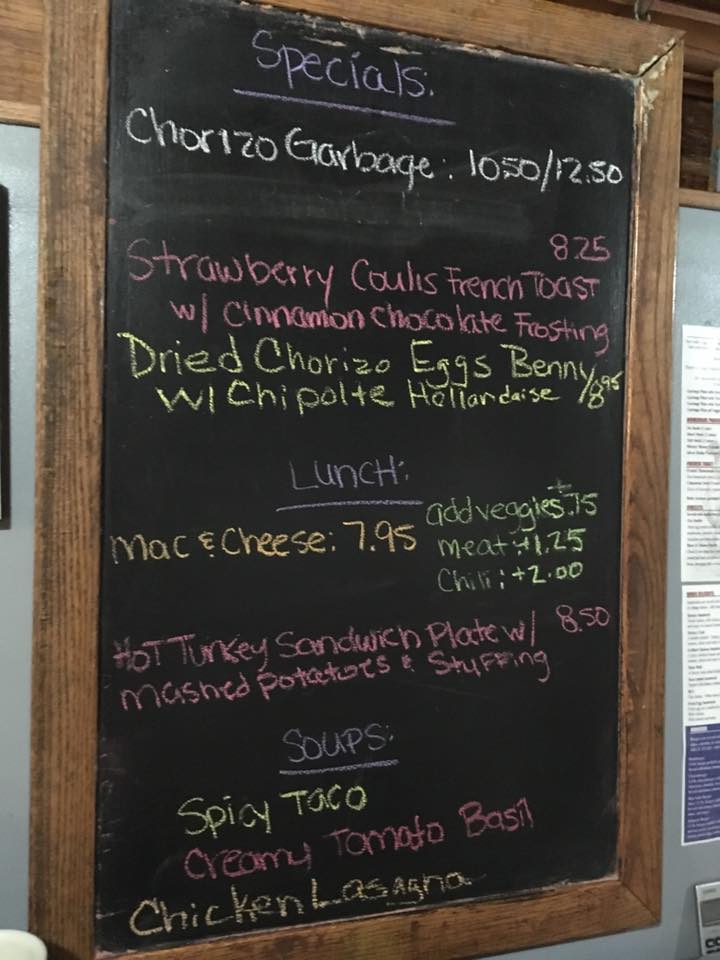 Specials:
Chorizo Garbage: 10.50/12.50
8.25
Strawberry Coulis French Toast
w/ Cinnamon Chocolate Frosting
Dried Chorizo Eggs Benny
w/ Chipolte Hollandaise /8.95
Lunch:
Mac & Cheese: 7.95
add veggies +.75
meat: +1.25
Chili: +2.00
Hot Turkey Sandwich Plate w/ 8.50
mashed potatoes & Stuffing
Soups:
Spicy Taco
Creamy Tomato Basil
Chicken Lasagna